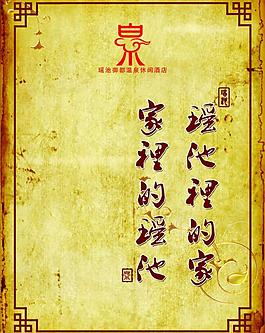 瑶池御都温泉休闲酒店
瑶池裡的家
家裡的瑶池